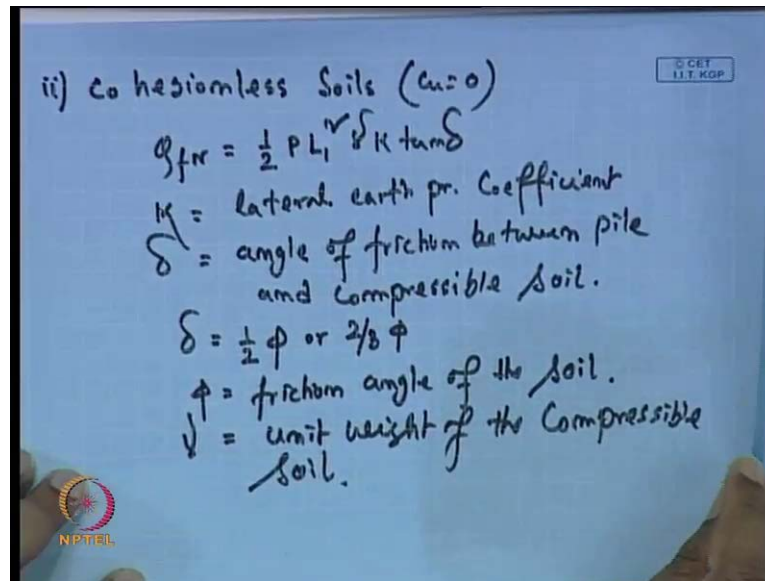 ii) Cohesionless Soils (Cu=0)
© CET
I.I.T. KGP
Qfn = 1/2 P L₁² γ K tanδ
K = lateral earth pr. Coefficient
δ = angle of friction between pile
and compressible soil.
δ = 1/2 φ or 2/3 φ
φ = friction angle of the soil.
γ = unit weight of the Compressible
soil.
NPTEL